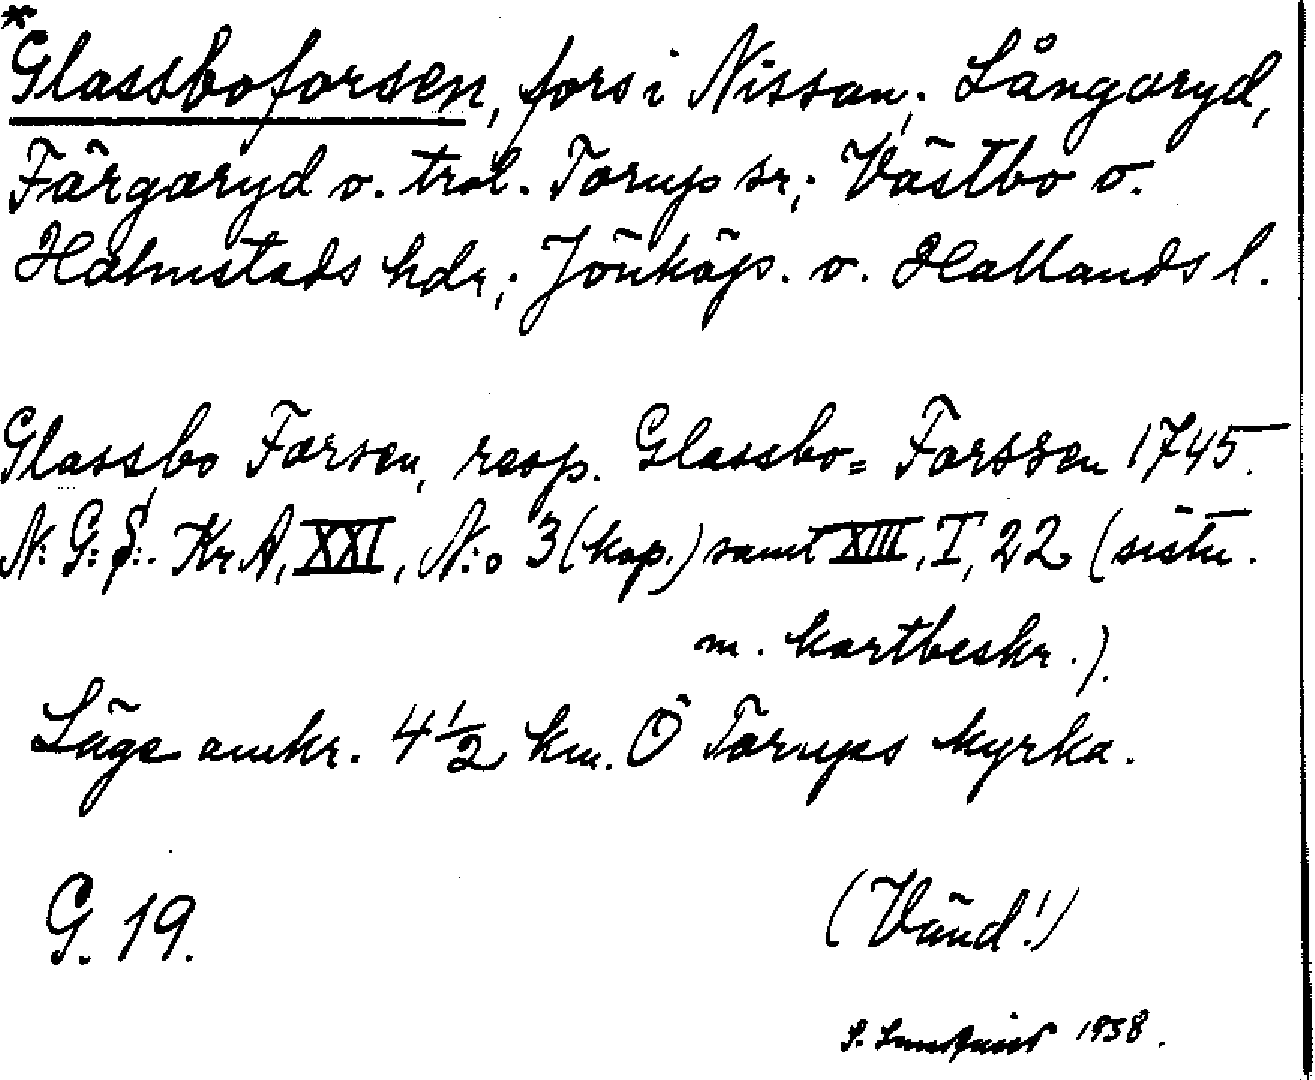 *
Glassboforsen, fors i Nissan; Långaryd,
Färgaryd o. trol. Torup sr; Västbo o.
Halmstads hdr; Jönköp. o. Hallands l.
Glassbo Forsen, resp. Glassbo= Forssen 1745.
N: G: S:. Kr A, XXI, N:o 3 (kop.) samt XIII, I, 22 (sistn.
m. kartbeskr.).
Läge omkr. 4 1/2 km. Ö Torups kyrka.
G. 19.
(Vänd!)
S. 1938.